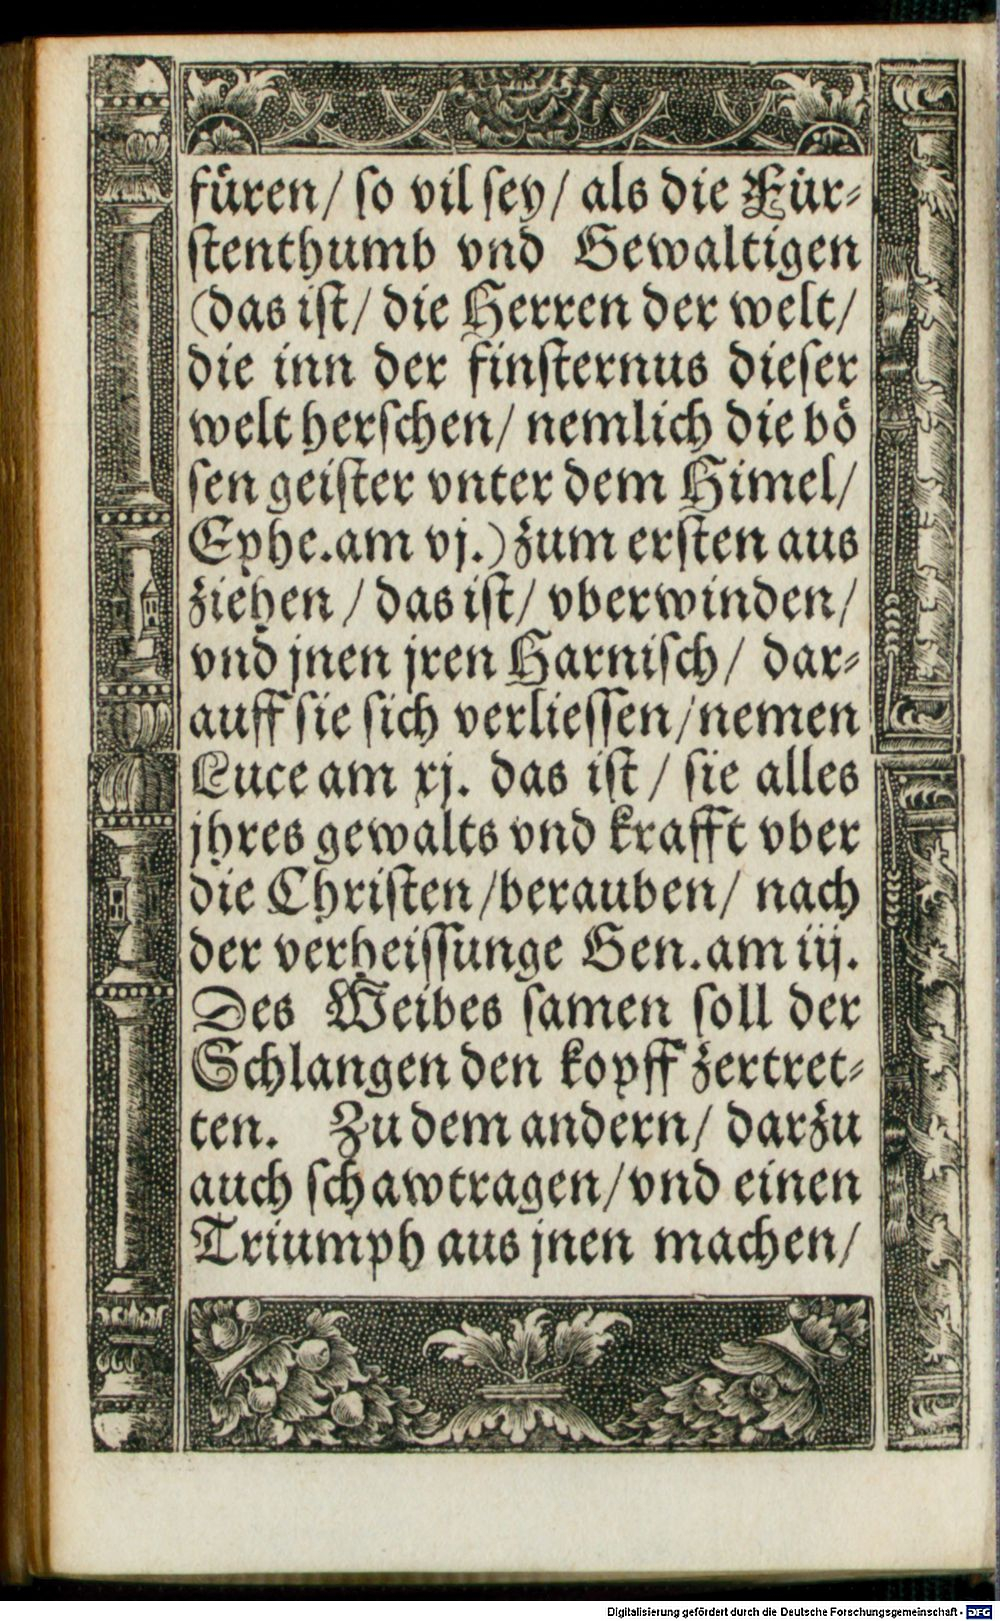 füren/ so vil sey/ als die Für⸗
stenthumb vnd Gewaltigen
(das ist/ die Herren der welt/
die inn der finsternus dieser
welt herschen/ nemlich die bö
sen geister vnter dem Himel/
Ephe.am vj.) zum ersten aus
ziehen / das ist/ vberwinden/
vnd jnen jren Harnisch/ dar⸗
auff sie sich verliessen/nemen
Luce am xj. das ist / sie alles
jhres gewalts vnd krafft vber
die Christen /berauben/ nach
der verheissunge Gen.am iij.
Des Weibes samen soll der
Schlangen den kopff zertret⸗
ten. Zu dem andern/ darzu
auch schawtragen/vnd einen
Triumph aus jnen machen/
Digitalisierung gefördert durch die Deutsche Forschungsgemeinschaft - DFG